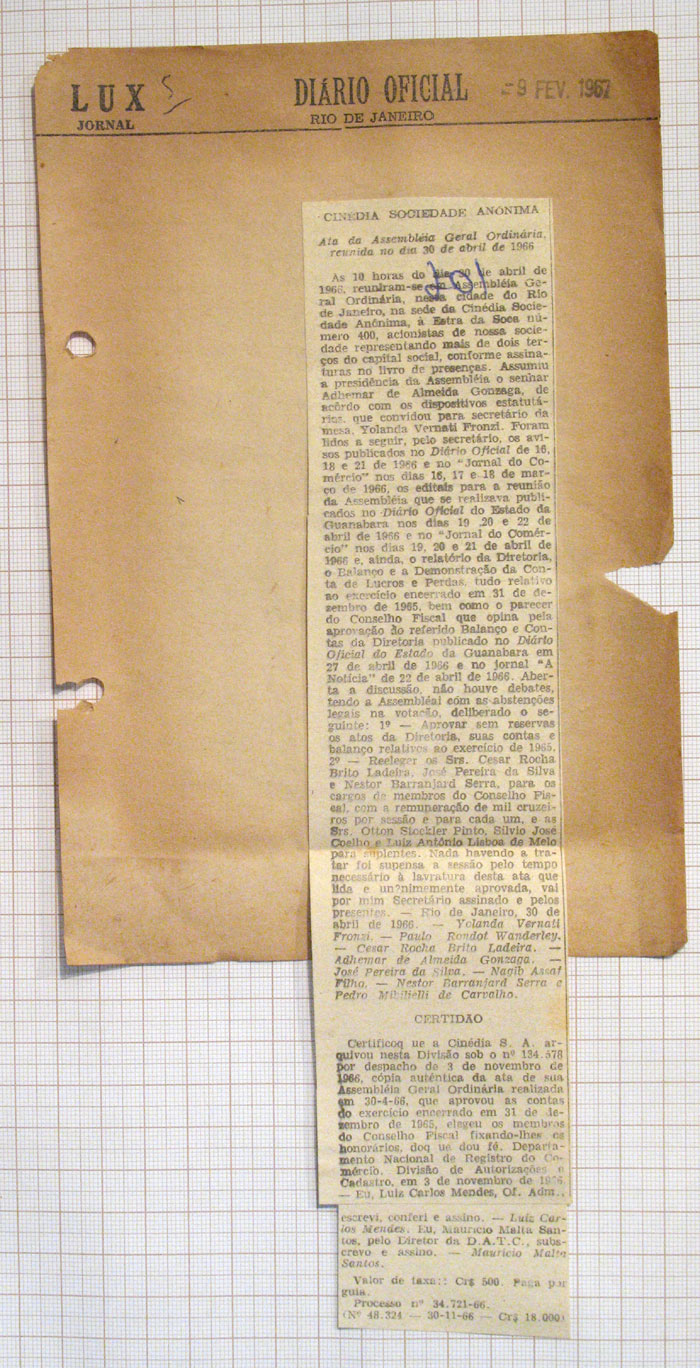 LUX
JORNAL
DIÁRIO OFICIAL
RIO DE JANEIRO
9 FEV. 1967
CINÉDIA SOCIEDADE ANÔNIMA
Ata da Assembléia Geral Ordinária,
reunida no dia 30 de abril de 1966
As 10 horas do dia 30 de abril de
1966, reuniram-se em Assembléia Ge-
ral Ordinária, nesta cidade do Rio
de Janeiro, na sede da Cinédia Socie-
dade Anônima, à Estra da Soca nú-
mero 400, acionistas de nossa socie-
dade representando mais de dois ter-
ços do capital social, conforme assina-
turas no livro de presenças. Assumiu
a presidência da Assembléia o senhar
Adhemar de Almeida Gonzaga, de
acôrdo com os dispositivos estatutá-
rios, que convidou para secretário da
mesa, Yolanda Vernati Fronzi. Foram
lidos a seguir, pelo secretário, os avi-
sos publicados no Diário Oficial de 16,
18 e 21 de 1966 e no "Jornal do Co-
mércio" nos dias 16, 17 e 18 de mar-
ço de 1966, os editais para a reunião
da Assembléia que se realizava publi-
cados no Diário Oficial do Estado da
Guanabara nos dias 19 ,20 e 22 de
abril de 1966 e no "Jornal do Comér-
cio" nos dias 19, 20 e 21 de abril de
1966 e, ainda, o relatório da Diretoria,
o Balanço e a Demonstração da Con-
ta de Lucros e Perdas, tudo relativo
ao exercício encerrado em 31 de de-
zembro de 1965, bem como o parecer
do Conselho Fiscal que opina pela
aprovação do referido Balanço e Con-
tas da Diretoria publicado no Diário
Oficial do Estado da Guanabara em
27 de abril de 1966 e no jornal "A
Notícia" de 22 de abril de 1966. Aber-
ta a discussão, não houve debates,
tendo a Assembléai com as abstenções
legais na votação, deliberado o se-
guinte: 1º — Aprovar sem reservas
os atos da Diretoria, suas contas e
balanço relativos ao exercício de 1965.
2º — Reeleger os Srs. Cesar Rocha
Brito Ladeira, José Pereira da Silva
e Nestor Barranjard Serra, para os
cargos de membros do Conselho Fis-
cal, com a remuneração de mil cruzei-
ros por sessão e para cada um, e as
Srs. Otton Stockler Pinto, Silvio José
Coelho e Luiz Antônio Lisboa de Melo
para suplentes. Nada havendo a tra-
tar foi supensa a sessão pelo tempo
necessário à lavratura desta ata que
lida e un?nimemente aprovada, vai
por mim Secretário assinado e pelos
presentes. — Rio de Janeiro, 30 de
abril de 1966. — Yolanda Vernati
Fronzi. — Paulo Rondot Wanderley.
— Cesar Rocha Brito Ladeira. —
Adhemar de Almeida Gonzaga. —
José Pereira da Silva. — Nagib Assaf
Filho. — Nestor Barranjard Serra e
Pedro de Carvalho.
CERTIDÃO
Certificoq ue a Cinédia S. A. ar-
quivou nesta Divisão sob o nº 134.578
por despacho de 3 de novembro de
1966, cópia autêntica da ata de sua
Assembléia Geral Ordinária realizada
em 30-4-66, que aprovou as contas
do exercício encerrado em 31 de de-
zembro de 1965, elegeu os membros
do Conselho Fiscal fixando-lhes os
honorários, doq ue dou fé. Departa-
mento Nacional de Registro do Co-
mércio. Divisão de Autorizações e
Cadastro, em 3 de novembro de 1966.
— Eu, Luiz Carlos Mendes, Of. Adm.,
escrevi, conferi e assino. — Luiz Car-
los Mendes. Eu, Mauricio Malta San-
tos, pelo Diretor da D.A.T.C., subs-
crevo e assino. — Mauricio Malta
Santos.
Valor de taxa:: Cr$ 500. Paga por
guia.
Processo nº 34.721-66.
(Nº 48.324 — 30-11-66 — Cr$ 18.000)